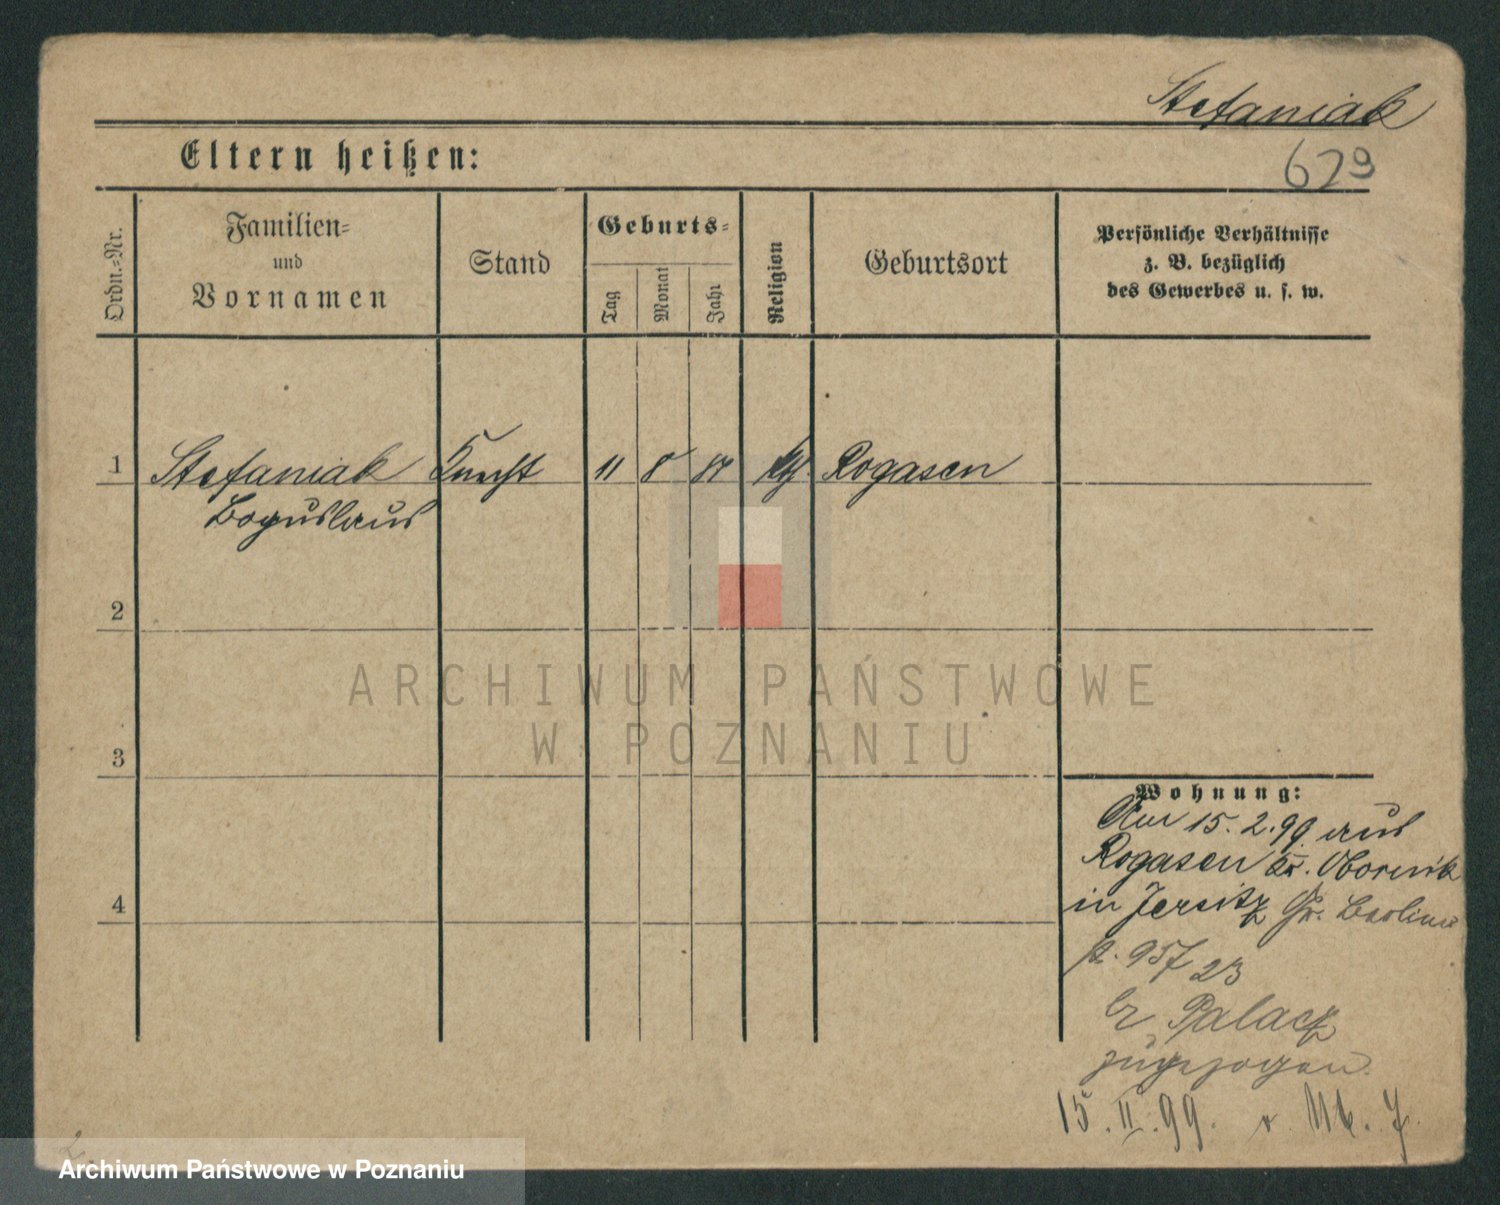 Stefaniak
Eltern heißen:
629
Ordn.-Nr.
Familien-
und
Vornamen
Stand
Geburts-
Tag
Monat
Jahr
Religion
Geburtsort
Persönliche Verhältnisse
z. B. bezüglich
des Gewerbes u. s. w.
1 Stefaniak Knecht 11 8 Rogasen
Boguslaus
2
3
4
ARCHIWUM PAŃSTWOWE
W POZNANIU
Wohnung:
Am 15.2.99 aus
Rogasen Kr. Obornik
in Jersitz Gr. Berliner
23
Palacz
zugezogen.
15.II.99.
2.
Archiwum Państwowe w Poznaniu